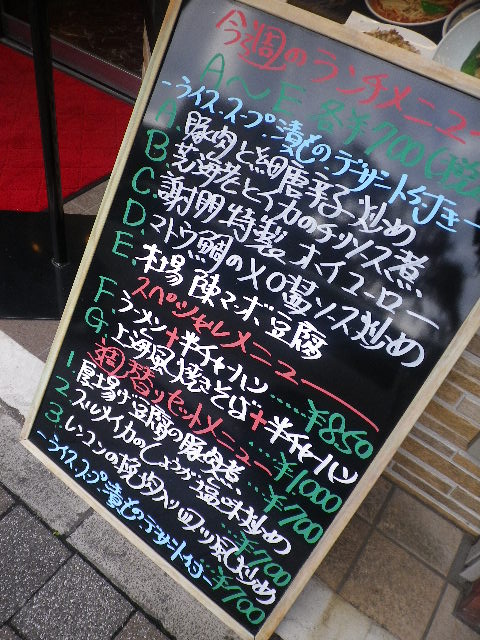 今週のランチメニュー
A〜E 各¥700(税
ーライス、スープ、漬もの、デザート付きー
A. 豚肉と細唐辛子炒め
B. 芝海老とイカのチリソース煮
C. 謝朋特製ホイコーロー
D. マトウ鯛のXO醤ソース炒め
E. 本場陳マーボ豆腐
スペシャルメニュー
F. ラーメン+半チャーハン……¥850
G. 上海風焼そば+半チャーハン
…¥1000
週替りセットメニュー
1. 厚揚げ豆腐の豚肉煮…¥700
2. スルメイカのしょうが塩味炒め
…¥700
3. レンコンの挽肉入り四川風炒め
ーライス、スープ、漬もの、デザート付ー ¥700